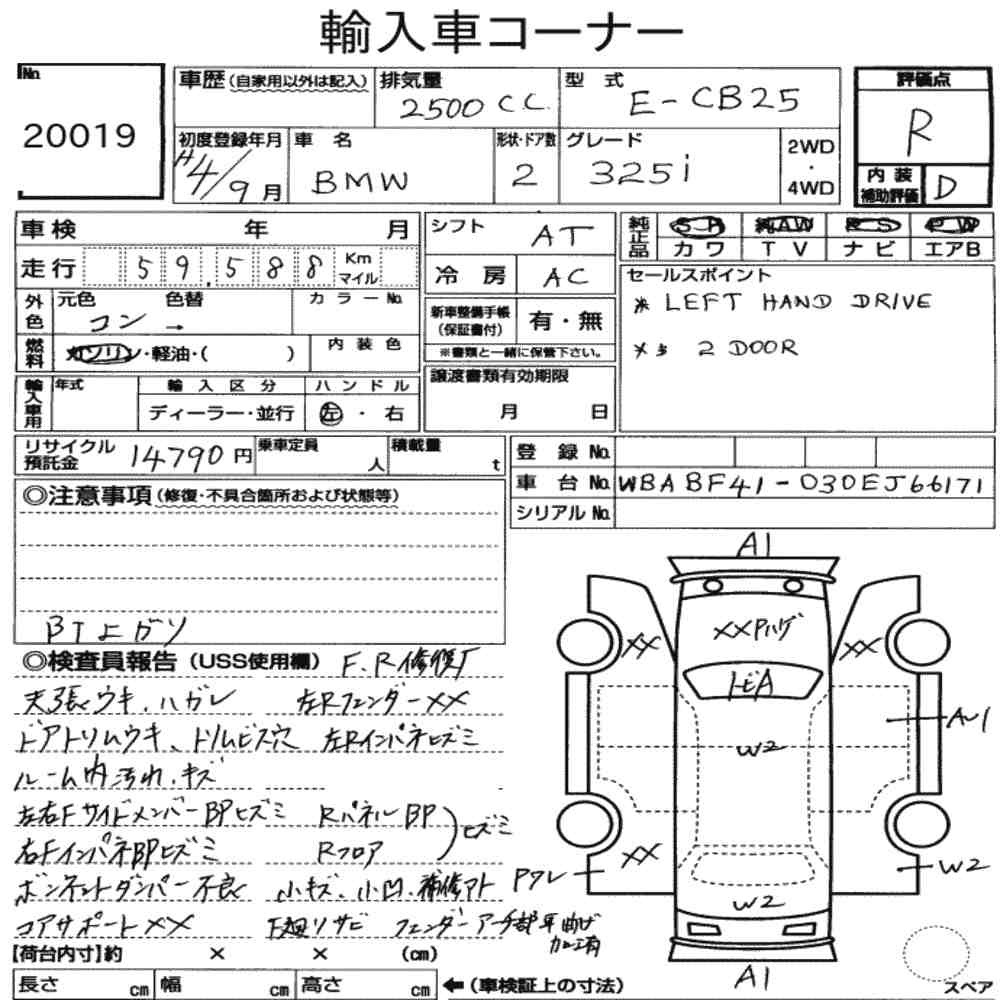 輸入車コーナー
No. 20019
車歴 (自家用以外は記入)
排気量 2500 C.C.
型式 E-CB25
評価点 R
初度登録年月 H4/9月
車名 BMW
形状・ドア数 2
グレード 325i
2WD・4WD
内装補助評価 D
車検 年 月
シフト AT
純正品 SR 純AW PS PW
カワ TV ナビ エアB
走行 59,588 Km マイル
冷房 AC
セールスポイント
※ LEFT HAND DRIVE
2 DOOR
外色 元色 コン→ 色替 カラーNo.
新車整備手帳(保証書付) 有・無
※書類と一緒に保管下さい。
燃料 ガソリン・軽油・( ) 内装色
譲渡書類有効期限 月 日
輸入車用 年式 輸入区分 ディーラー・並行 ハンドル 左・右
リサイクル預託金 14790円
乗車定員 人
積載量 t
登録No.
車台No. WBABF41-030EJ66171
シリアルNo.
◎注意事項 (修復・不具合箇所および状態等)
BTよがり
◎検査員報告 (USS使用欄) F.R修復有
天張ウキ、ハガレ 左Rフェンダー××
ドアトリムウキ、トリムビス穴 左Rインパネヒズミ
ルーム内汚れ・キズ
左右Fサイドメンバー BPヒズミ RパネルBP
右FインパネBPヒズミ Rフロア ヒズミ
ボンネットダンパー不良 小キズ、小凹、補修アト
コアサポート×× F廻リサビ フェンダーアーチ部 曲げ加工有
【荷台内寸】約 × × (cm)
長さ cm 幅 cm 高さ cm ←(車検証上の寸法)
A1
×× ××Pハゲ ××
トビA
A-1
W2
××
Pワレ
W2
W2
A1
スペア